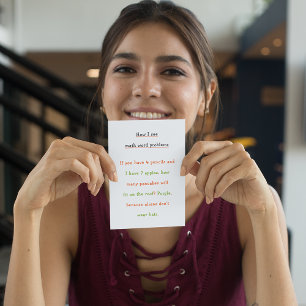 How I see
math word problems:
If you have 4 pencils and
I have 7 apples, how
many pancakes will
fit on the roof? Purple,
because aliens don't
wear hats.